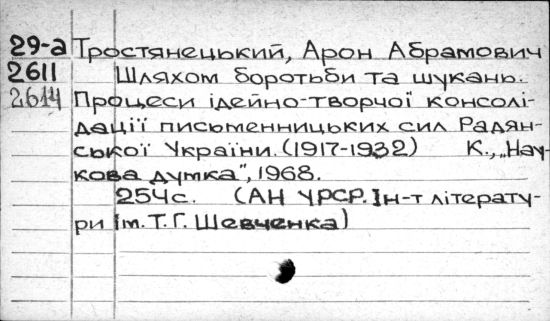 29-а Тростянецький, Арон Абрамович
2611 Шляхом боротьби та шукань.
2614 Процеси ідейно-творчої консолі-
дації письменницьких сил Радян-
ської України. (1917-1932) К., „Нау-
кова думка", 1968.
254с. (АН УРСР. Ін-т літерату-
ри ім. Т. Г. Шевченка)